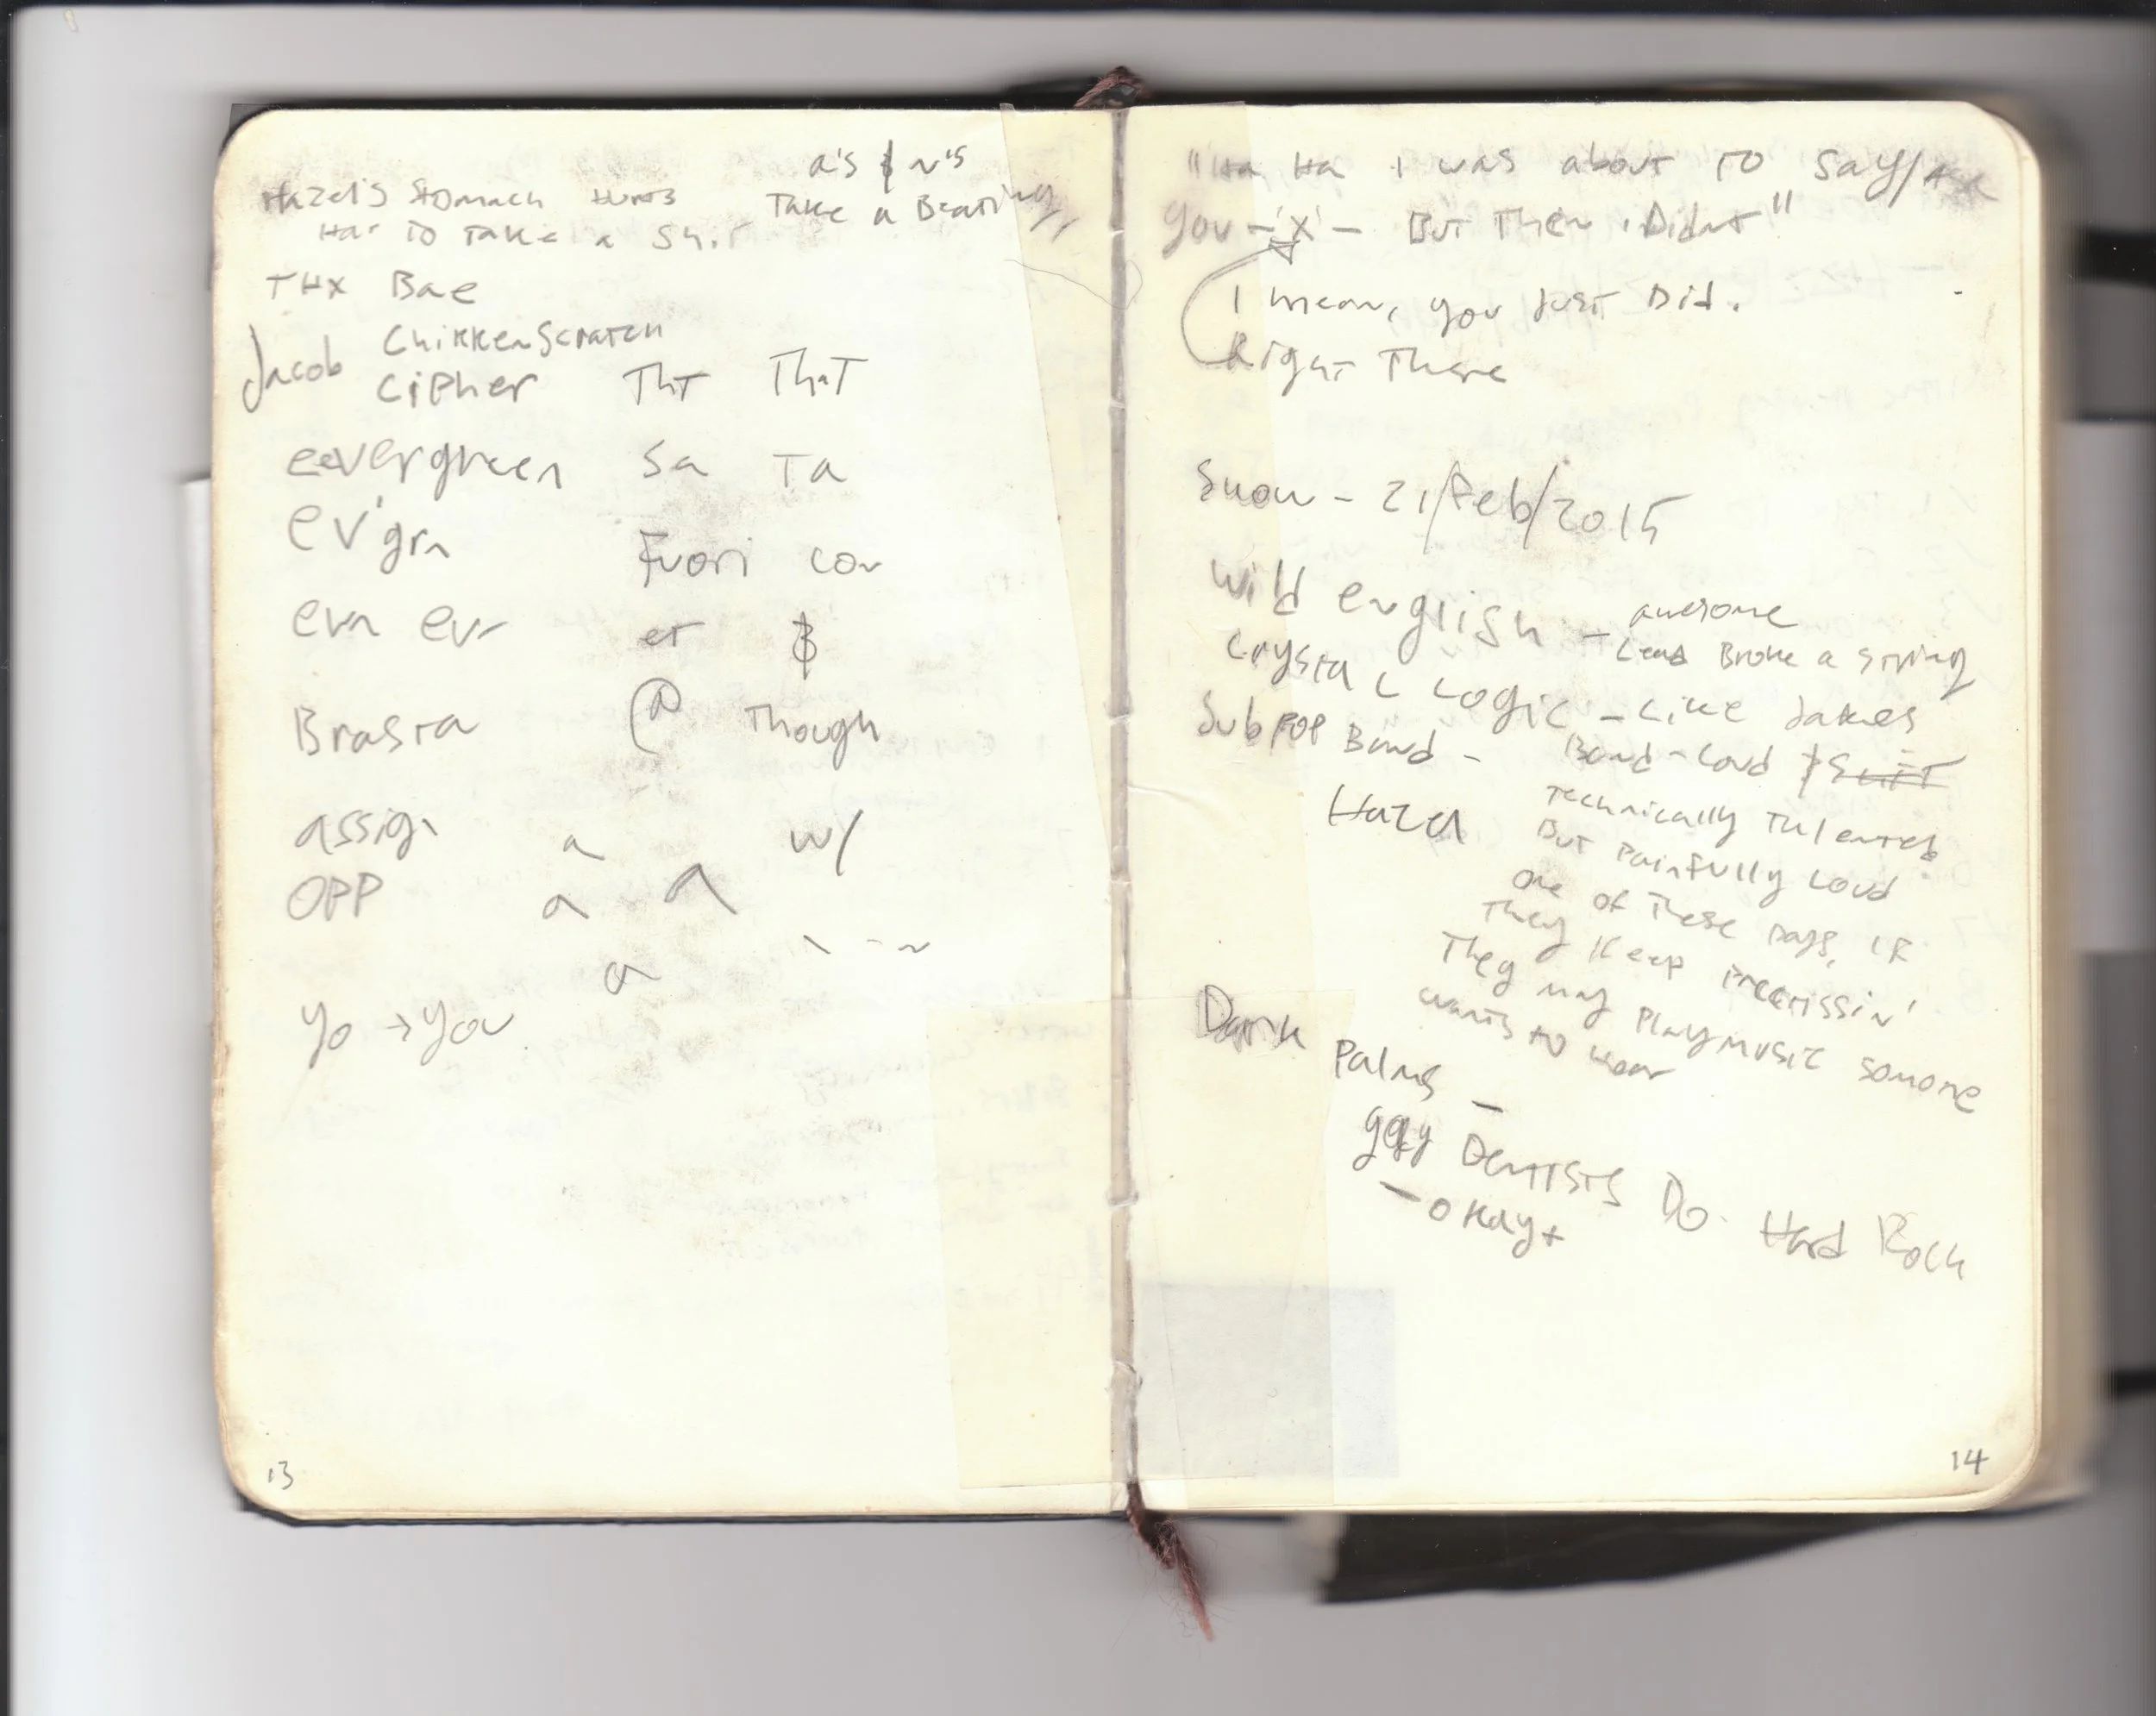 Hazel's Stomach Hurts
Has to take a Shit
a's & n's
Take a Beating
THX Bae
Jacob ChikkenScratch
Cipher ThT ThaT
eevergreen Sa Ta
ev'grn
Fuori con
evn evr et &
Brasta @ Though
assign a w/
OPP a a
a
yo → you
13
"Ha Ha I was about to say/ask
you -'X'- But Then I Didnt"
I mean, you Just Did.
Right There
Snow - 21/Feb/2015
Wild english - awesome
Lead Broke a string
Crystal Logic - Like Jakes
Sub POP Band - Band - Loud & Shit
Hazel
Technically Talented
But Painfully Loud
One of These Days, if
They Keep Practissin'
They may Play music somone
wants to hear
Dark Palms -
gay Dentists Do Hard Rock
- okay+
14